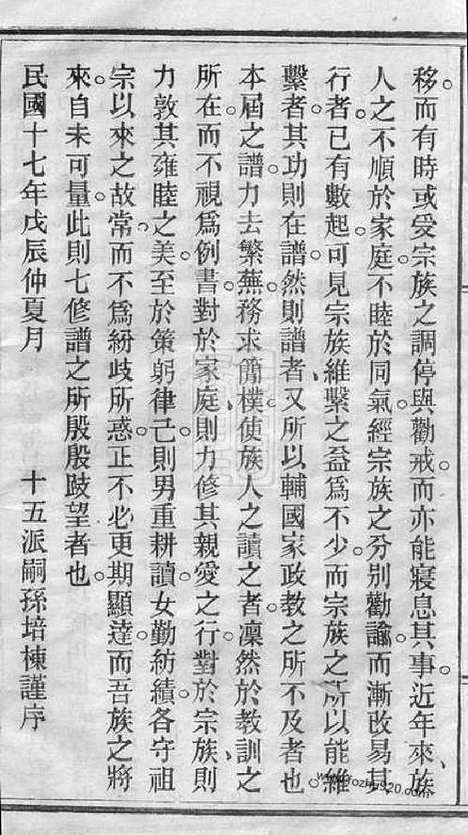 移而有時或受宗族之調停與勸戒而亦能寢息其事近年來族
人之不順於家庭不睦於同氣經宗族之分別勸諭而漸改易其
行者已有數起可見宗族維繫之益爲不少而宗族之所以能維
繫者其功則在譜然則譜者又所以輔國家政教之所不及者也
本屆之譜力去繁蕪務求簡樸使族人之讀之者凜然於教訓之
所在而不視爲例書對於家庭則力修其親愛之行對於宗族則
力敦其雍睦之美至於策躬律己則男重耕讀女勤紡績各守祖
宗以來之故常而不爲紛歧所惑正不必更期顯達而吾族之將
來自未可量此則七修譜之所殷殷跂望者也
民國十七年戊辰仲夏月 十五派嗣孫培棟謹序